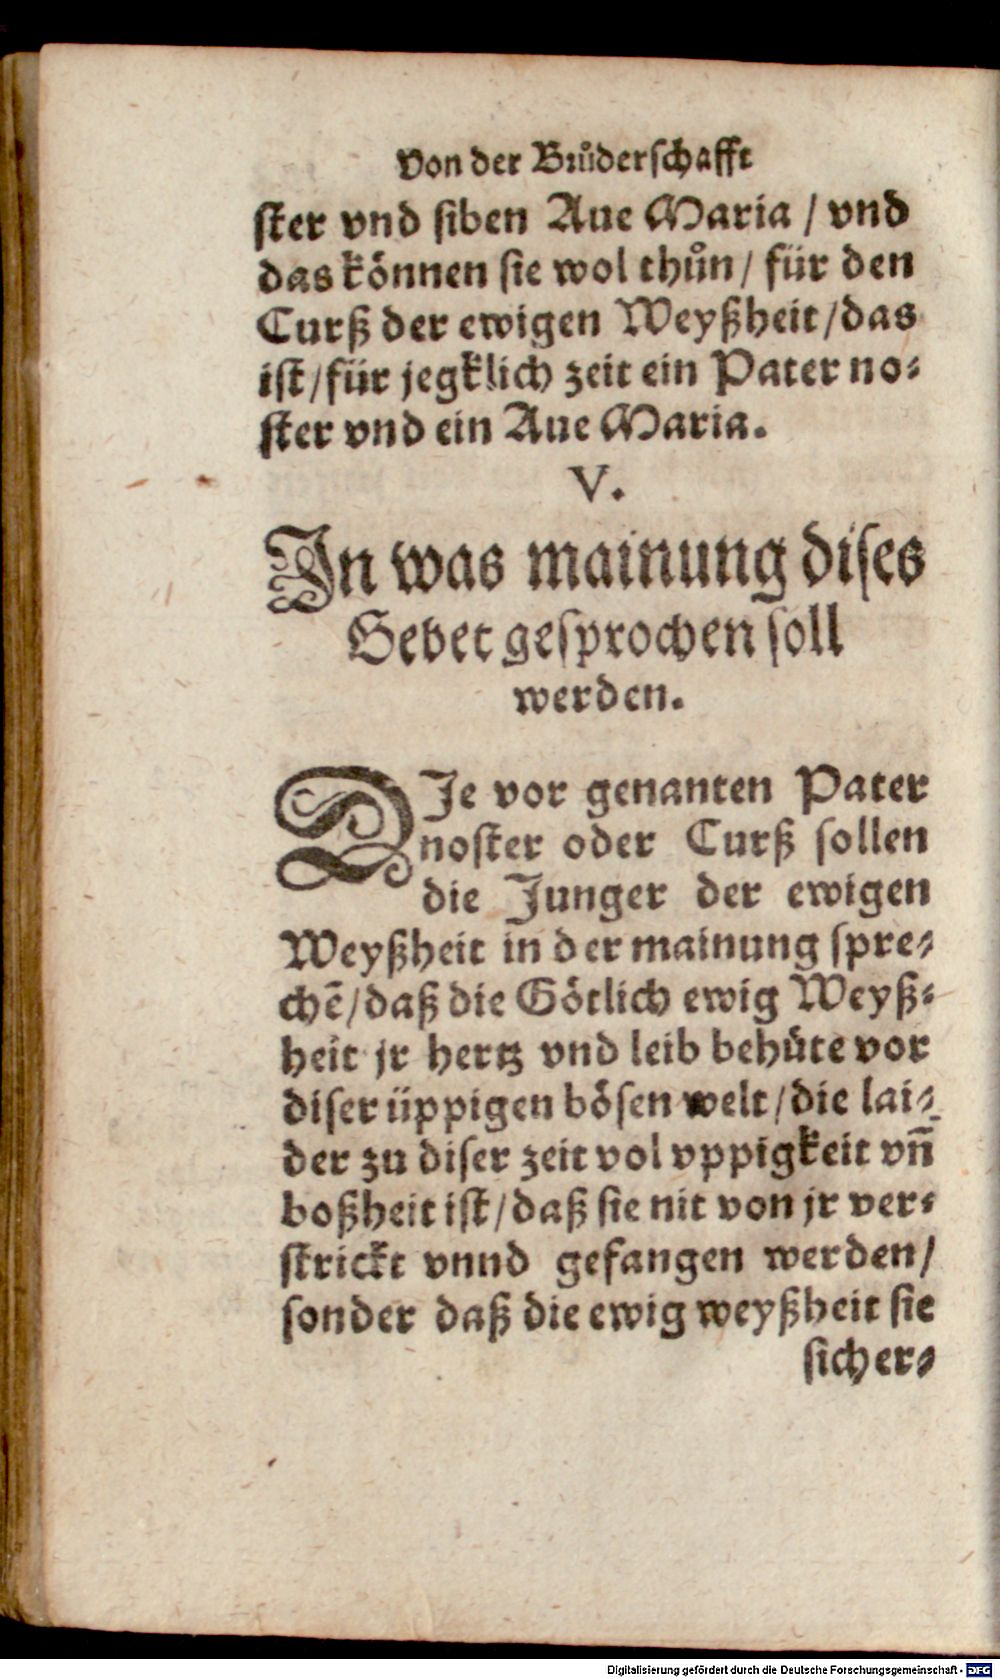 Von der Bruͤderschafft
ster vnd siben Aue Maria / vnd
das koͤnnen sie wol thuͦn / für den
Curß der ewigen Weyßheit / das
ist / für jegklich zeit ein Pater no⸗
ster vnd ein Aue Maria.
V.
In was mainung dises
Gebet gesprochen soll
werden.
DIe vor genanten Pater
noster oder Curß sollen
die Junger der ewigen
Weyßheit in der mainung spre⸗
chē / daß die Goͤtlich ewig Weyß⸗
heit jr hertz vnd leib behuͤte vor
diser üppigen boͤsen welt / die lai⸗
der zu diser zeit vol vppigkeit vn̄
boßheit ist / daß sie nit von jr ver⸗
strickt vnnd gefangen werden /
sonder daß die ewig weyßheit sie
sicher⸗
Digitalisierung gefördert durch die Deutsche Forschungsgemeinschaft - DFG